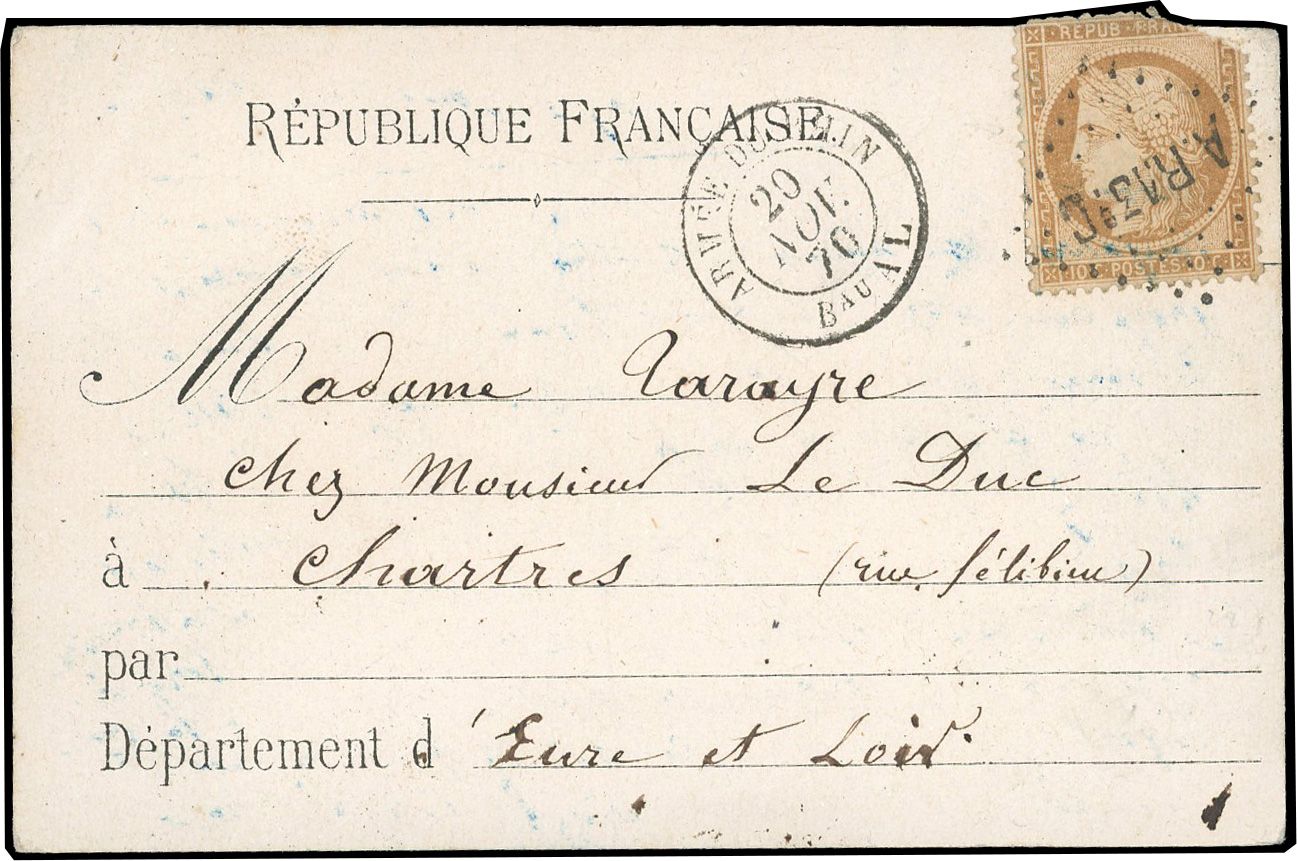 RÉPUB FRANC
10 POSTES 10 C
A.R.13e.C
RÉPUBLIQUE FRANÇAISE.
ARMÉE DU RHIN
20
NOV.
70
BAU AL
Madame Tarayre
chez Monsieur Le Duc
à Chartres (rue félibien)
par
Département d'Eure et Loir.